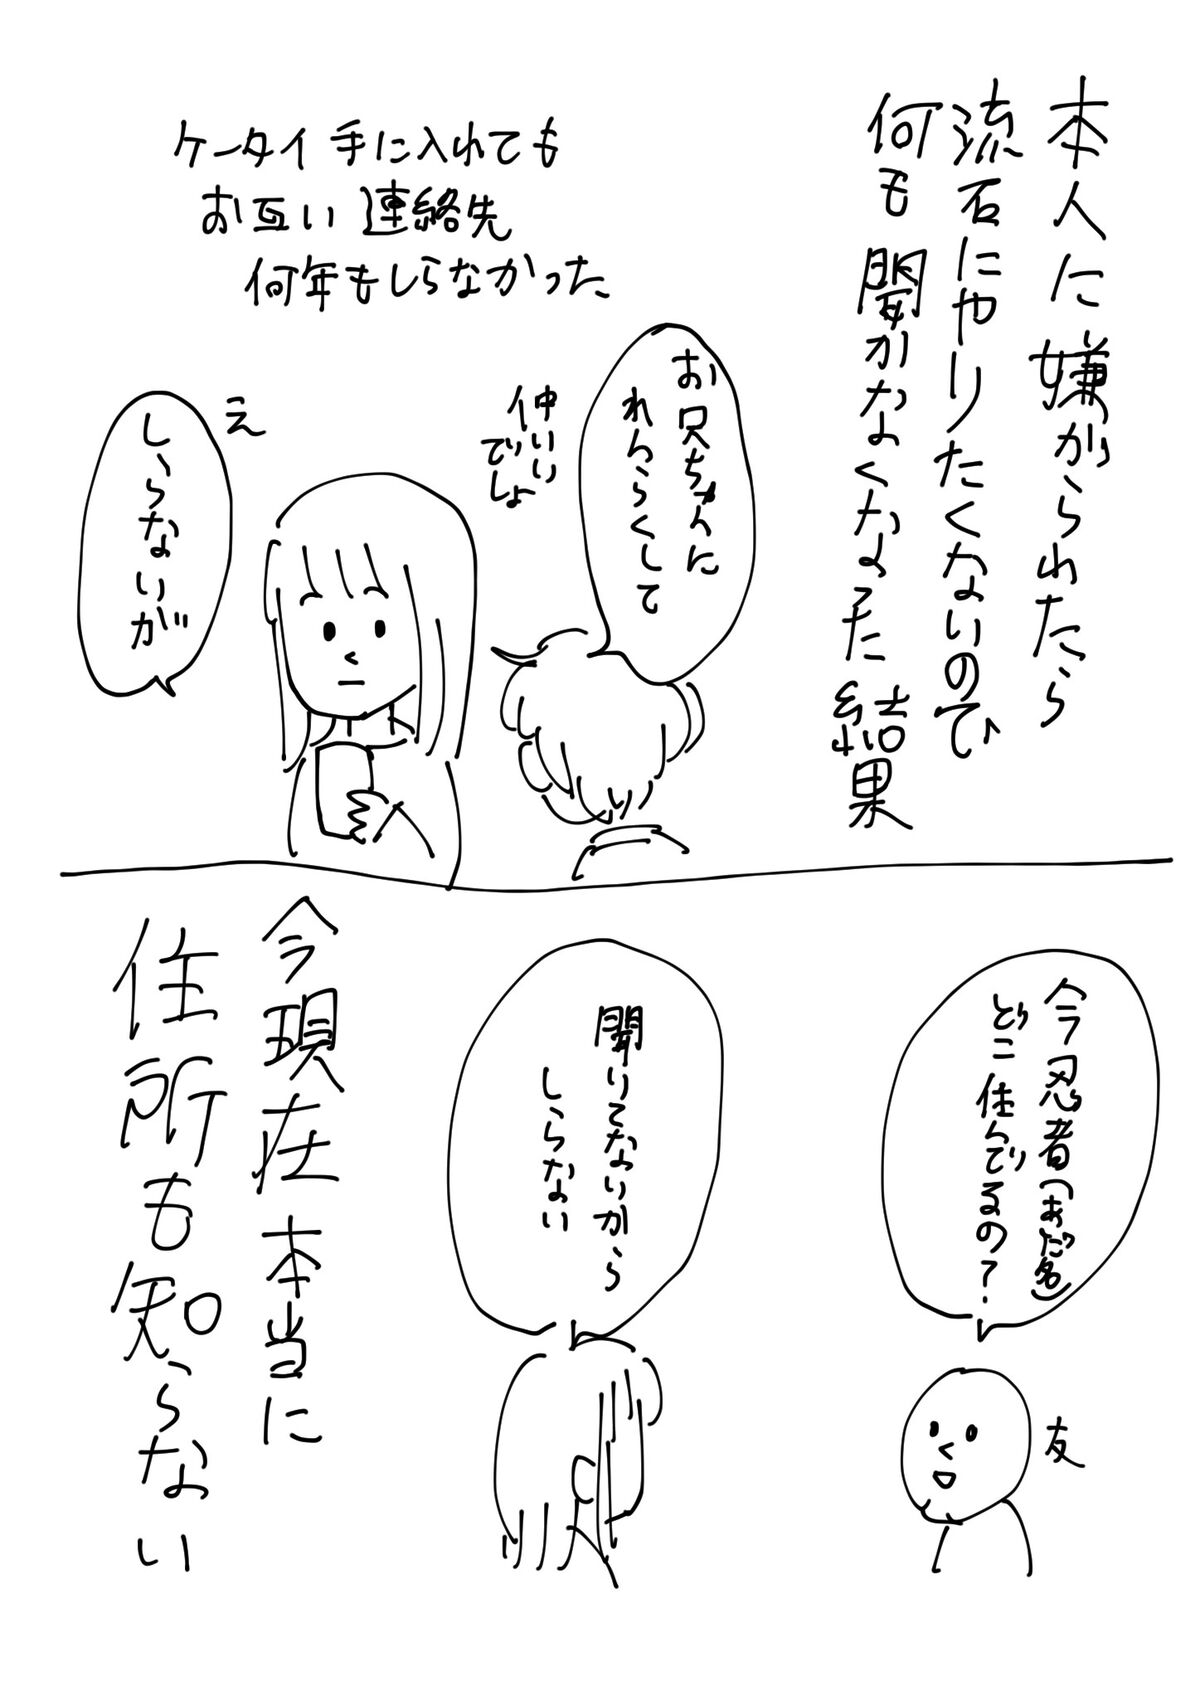 本人に嫌がられたら
流石にやりたくないので
何も聞かなくなった結果
ケータイ手に入れても
お互い連絡先
何年もしらなかった
お兄ちゃんに
れんらくして
仲いい
でしょ
え
しらないが
今忍者(あだ名)
どこ住んでるの?
友
聞いてないから
しらない
今現在本当に
住所も知らない